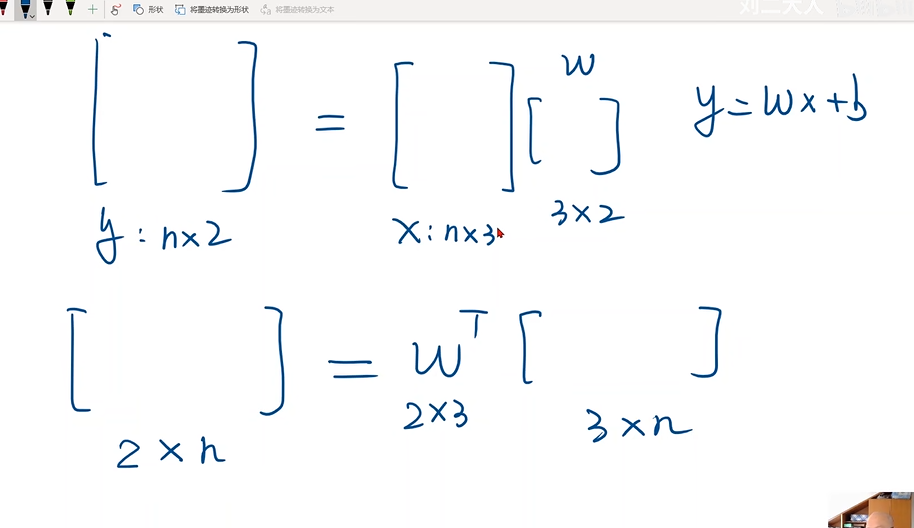 形状 将墨迹转换为形状 将墨迹转换为文本
刘二大人
[ ] = [ ] [ ] y = wx + b
w
y : n×2 x : n×3 3×2
[ ] = w^T [ ]
2×n 2×3 3×n